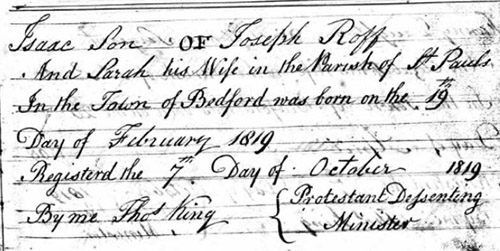 Isaac Son OF Joseph Roff
And Sarah his Wife in the Parish of St Pauls
In the Town of Bedford was born on the 19th
Day of February 1819
Registerd the 7th Day of October 1819
By me Thos King { Protestant Dessenting
Minister